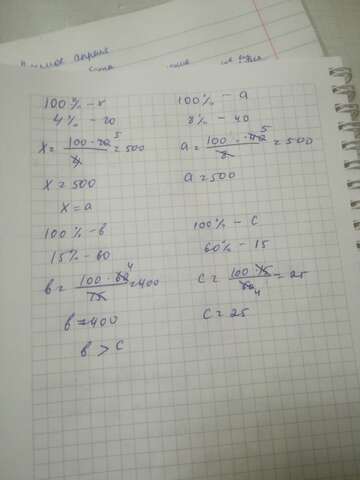 100% - x
4% - 20
x = 100 · 20 5 / 4 = 500
x = 500
x = a
100% - a
8% - 40
a = 100 · 40 5 / 8 = 500
a = 500
100% - в
15% - 60
в = 100 · 60 4 / 15 = 400
в = 400
в > с
100% - с
60% - 15
с = 100 · 15 / 60 4 = 25
с = 25